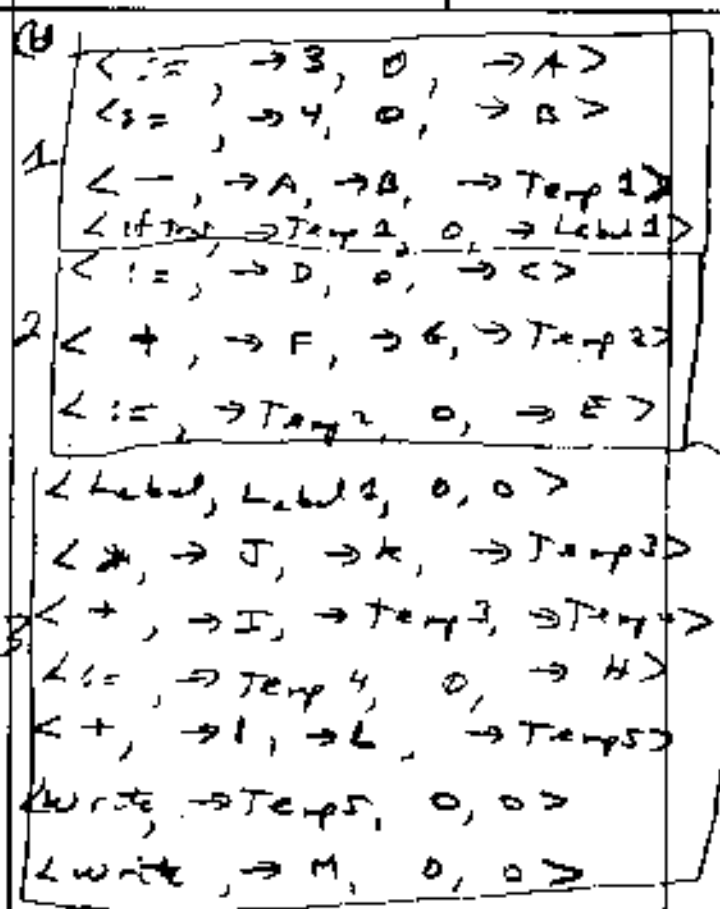 < := , → 3, 0, → A >
< := , → 4, 0, → B >
1
< − , → A, → B, → Temp 1 >
→ Temp 1, 0, → Label 1 >
< := , → D, 0, → C >
2 < + , → F, → G, → Temp 2 >
< := , → Temp 2, 0, → E >
< Label, Label 1, 0, 0 >
< *, → J, → K, → Temp 3 >
3 < + , → I, → Temp 3, → Temp 4 >
< := , → Temp 4, 0, → H >
< + , → 1, → L , → Temp 5 >
< write, → Temp 5, 0, 0 >
< write , → M, 0, 0 >